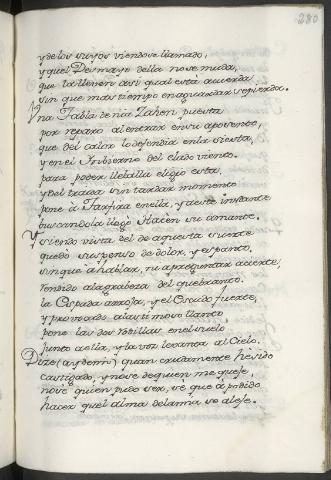 280
y de los suyos viendose llamado,
y que el Desmayo della no se muda,
que la lleuen asi qual està acuerda
sin que mas tiempo en aguardar se pierda.
Una Tabla de na Zahen puesta
por reparo al entrar en su aposento,
que del calor lo defendia en la siesta,
y en el Inbierno del elado viento.
para poder lleballa eligiò esta,
y del traida sin tardar momento
pone à Tarfira en ella, y a este instante
buscandola llegò Hacen su amante.
Y siendo vista del de aquesta suerte
quedo suspenso de dolor, y espanto,
sin que à hablar, ni à preguntar acierte,
rendido a la grabeza del quebranto.
la Espada arroja, y el Escudo fuerte,
y prouocado a lastimoso llanto
pone las dos rodillas en el suelo
junto a ella, y la voz levanta al Cielo.
Dize (ay de mi) quan crudamente he sido
castigado, y no se de quien me queje,
no sè quien pudo ser, ni que à podido
hacer quel alma del anima se aleje.